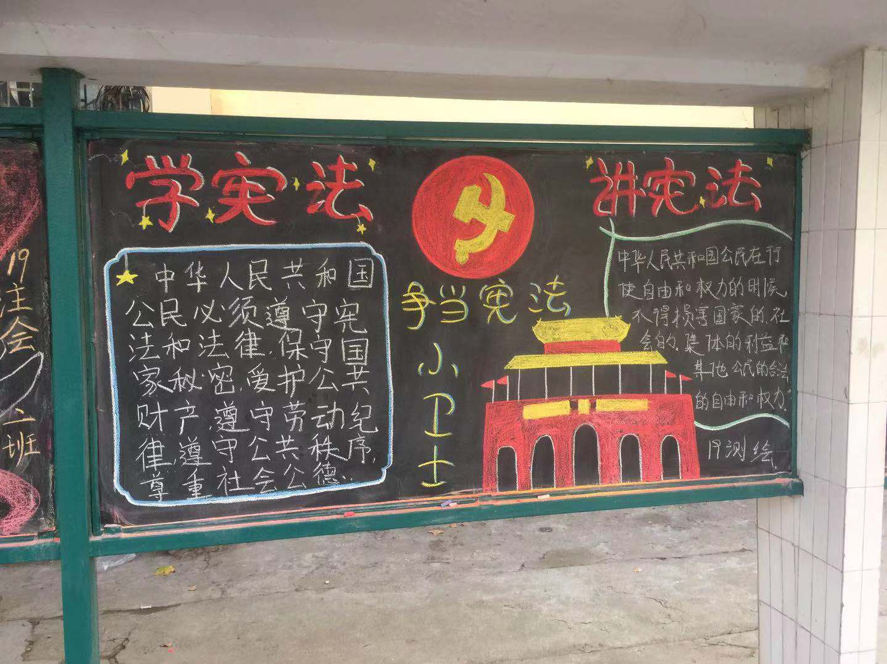 学宪法
讲宪法
中华人民共和国
公民必须遵守宪
法和法律,保守国
家秘密,爱护公共
财产遵守劳动纪
律,遵守公共秩序,
尊重社会公德..
争当宪法
小卫士
中华人民共和国公民在行
使自由和权力的时候,
不得损害国家的,社
会的,集体的利益和
其他公民的合法
的自由和权力."
19测绘
19
注会
二班